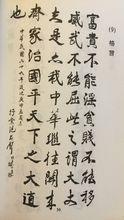 (9) 格言
富貴不能淫貧賤不能移
威武不能屈此之謂大丈
夫是為我中華繼往開來
齊家治國平天下之大道
也
中華民國六十九年歲次庚申